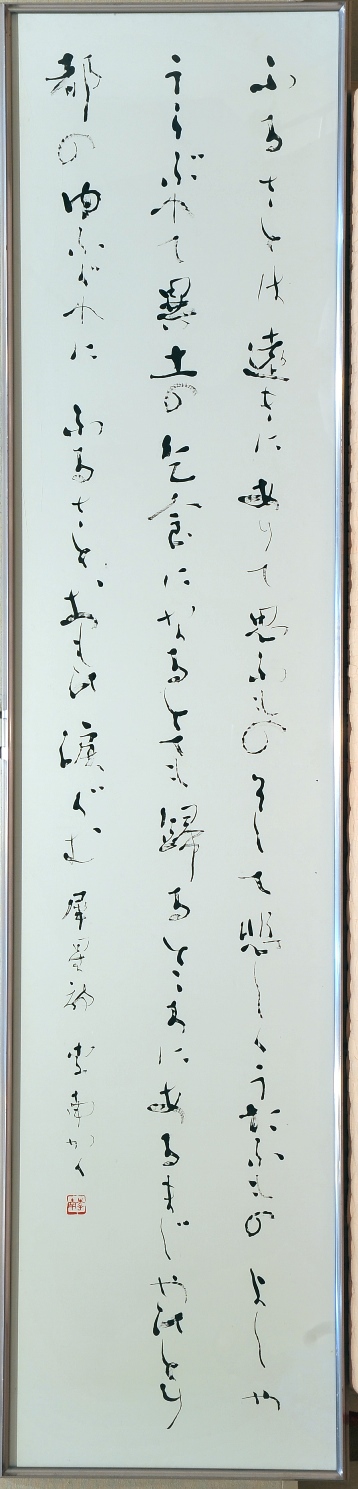 ふるさとは遠きにありて思ふものそして悲しくうたふものよしや
うらぶれて異土の乞食になるとても歸るところにあるまじやひとり
都のゆふぐれにふるさとおもひ涙ぐむ 犀星詩 かく